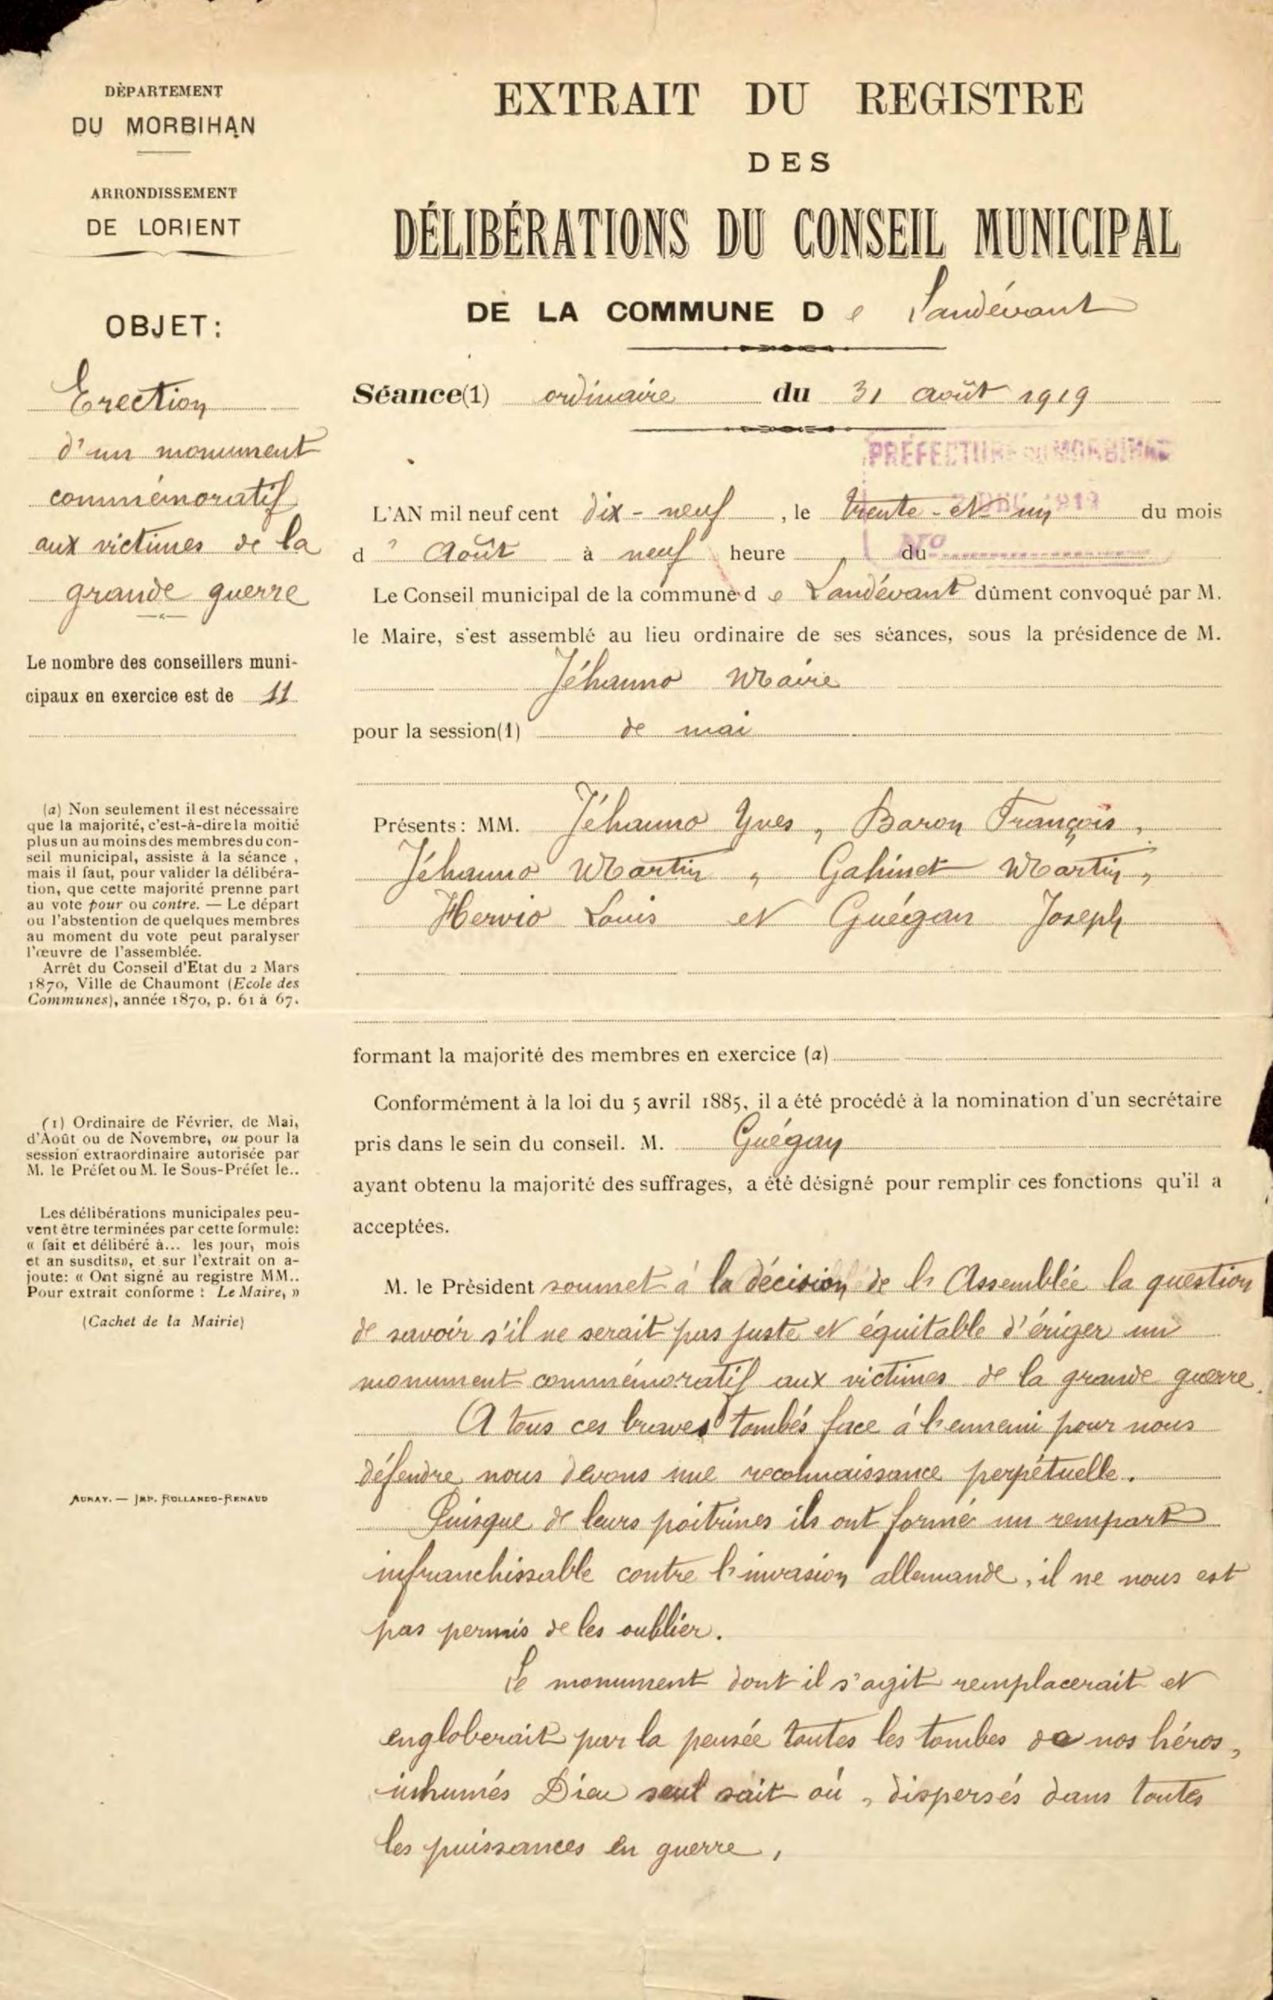 DÉPARTEMENT
DU MORBIHAN
ARRONDISSEMENT
DE LORIENT
OBJET:
Erection
d'un monument
commémoratif
aux victimes de la
grande guerre
Le nombre des conseillers muni-
cipaux en exercice est de 11
(a) Non seulement il est nécessaire
que la majorité, c'est-à-dire la moitié
plus un au moins des membres du con-
seil municipal, assiste à la séance,
mais il faut, pour valider la délibéra-
tion, que cette majorité prenne part
au vote pour ou contre. — Le départ
ou l'abstention de quelques membres
au moment du vote peut paralyser
l'œuvre de l'assemblée.
Arrêt du Conseil d'Etat du 2 Mars
1870, Ville de Chaumont (Ecole des
Communes), année 1870, p. 61 à 67.
(1) Ordinaire de Février, de Mai,
d'Août ou de Novembre, ou pour la
session extraordinaire autorisée par
M. le Préfet ou M. le Sous-Préfet le..
Les délibérations municipales peu-
vent être terminées par cette formule:
« fait et délibéré à... les jour, mois
et an susdits», et sur l'extrait on a-
joute: « Ont signé au registre MM..
Pour extrait conforme : Le Maire, »
(Cachet de la Mairie)
AURAY. — IMP. ROLLANDO-RENAUD
EXTRAIT DU REGISTRE
DES
DÉLIBÉRATIONS DU CONSEIL MUNICIPAL
DE LA COMMUNE D e Landévant
Séance(1) ordinaire du 31 août 1919
PRÉFECTURE DU MORBIHAN
DEC. 1919
No
L'AN mil neuf cent dix-neuf, le trente-et-un du mois
d'Août à neuf heure du
Le Conseil municipal de la commune d e Landévant dûment convoqué par M.
le Maire, s'est assemblé au lieu ordinaire de ses séances, sous la présidence de M.
Jéhanno Maire
pour la session(1) de mai
Présents: MM. Jéhanno Yves, Baron François,
Jéhanno Martin, Gahinet Martin,
Hervio Louis et Guégan Joseph
formant la majorité des membres en exercice (a)
Conformément à la loi du 5 avril 1885, il a été procédé à la nomination d'un secrétaire
pris dans le sein du conseil. M. Guégan
ayant obtenu la majorité des suffrages, a été désigné pour remplir ces fonctions qu'il a
acceptées.
M. le Président soumet à la décision de l'Assemblée la question
de savoir s'il ne serait pas juste et équitable d'ériger un
monument commémoratif aux victimes de la grande guerre.
A tous ces braves tombés face à l'ennemi pour nous
défendre nous devons une reconnaissance perpétuelle.
Puisque de leurs poitrines ils ont formé un rempart
infranchissable contre l'invasion allemande, il ne nous est
pas permis de les oublier.
Le monument dont il s'agit remplacerait et
engloberait par la pensée toutes les tombes de nos héros,
inhumés Dieu seul sait où, dispersés dans toutes
les puissances en guerre,